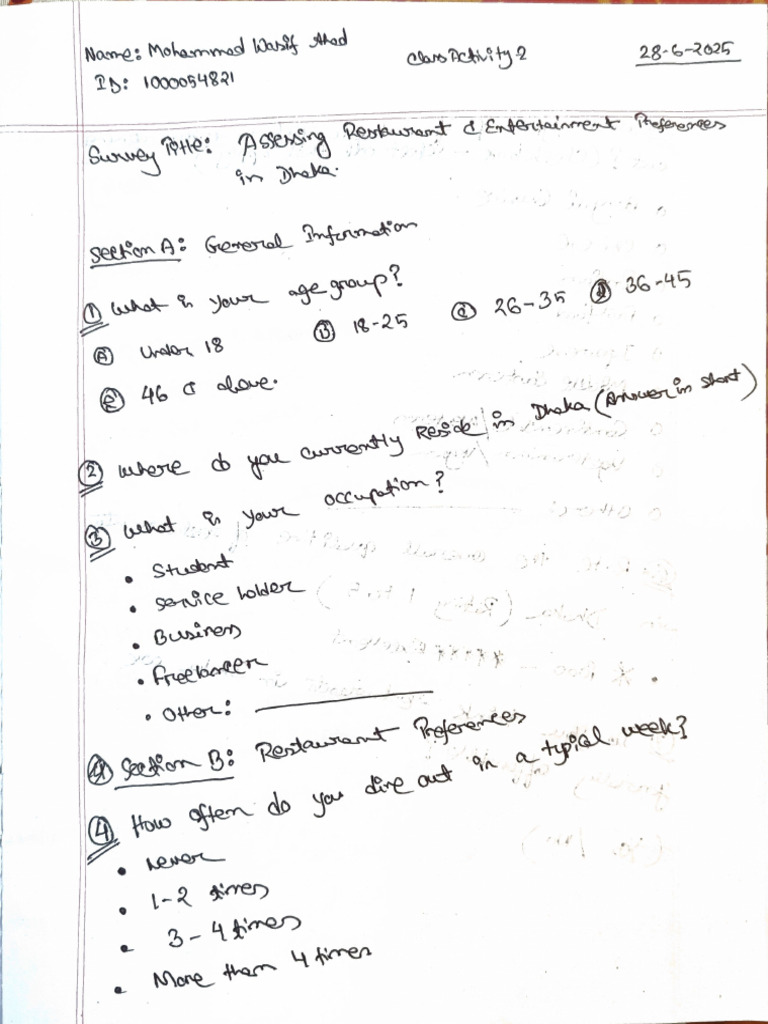 Name: Mohammad Wasif Ahad
Class Activity 2
28-6-2025
ID: 1000054821
Survey Title: Assessing Restaurant & Entertainment Preferences
in Dhaka.
Section A: General Information
① What is your age group?
Ⓐ Under 18 Ⓑ 18-25 Ⓒ 26-35 Ⓓ 36-45
Ⓔ 46 & above.
② Where do you currently Reside in Dhaka (Answer in short)
③ What is your occupation?
• Student
• Service holder
• Business
• Freelancer
• Other: ________
Section B: Restaurant Preferences
④ How often do you dine out in a typical week?
• Never
• 1-2 times
• 3-4 times
• More than 4 times